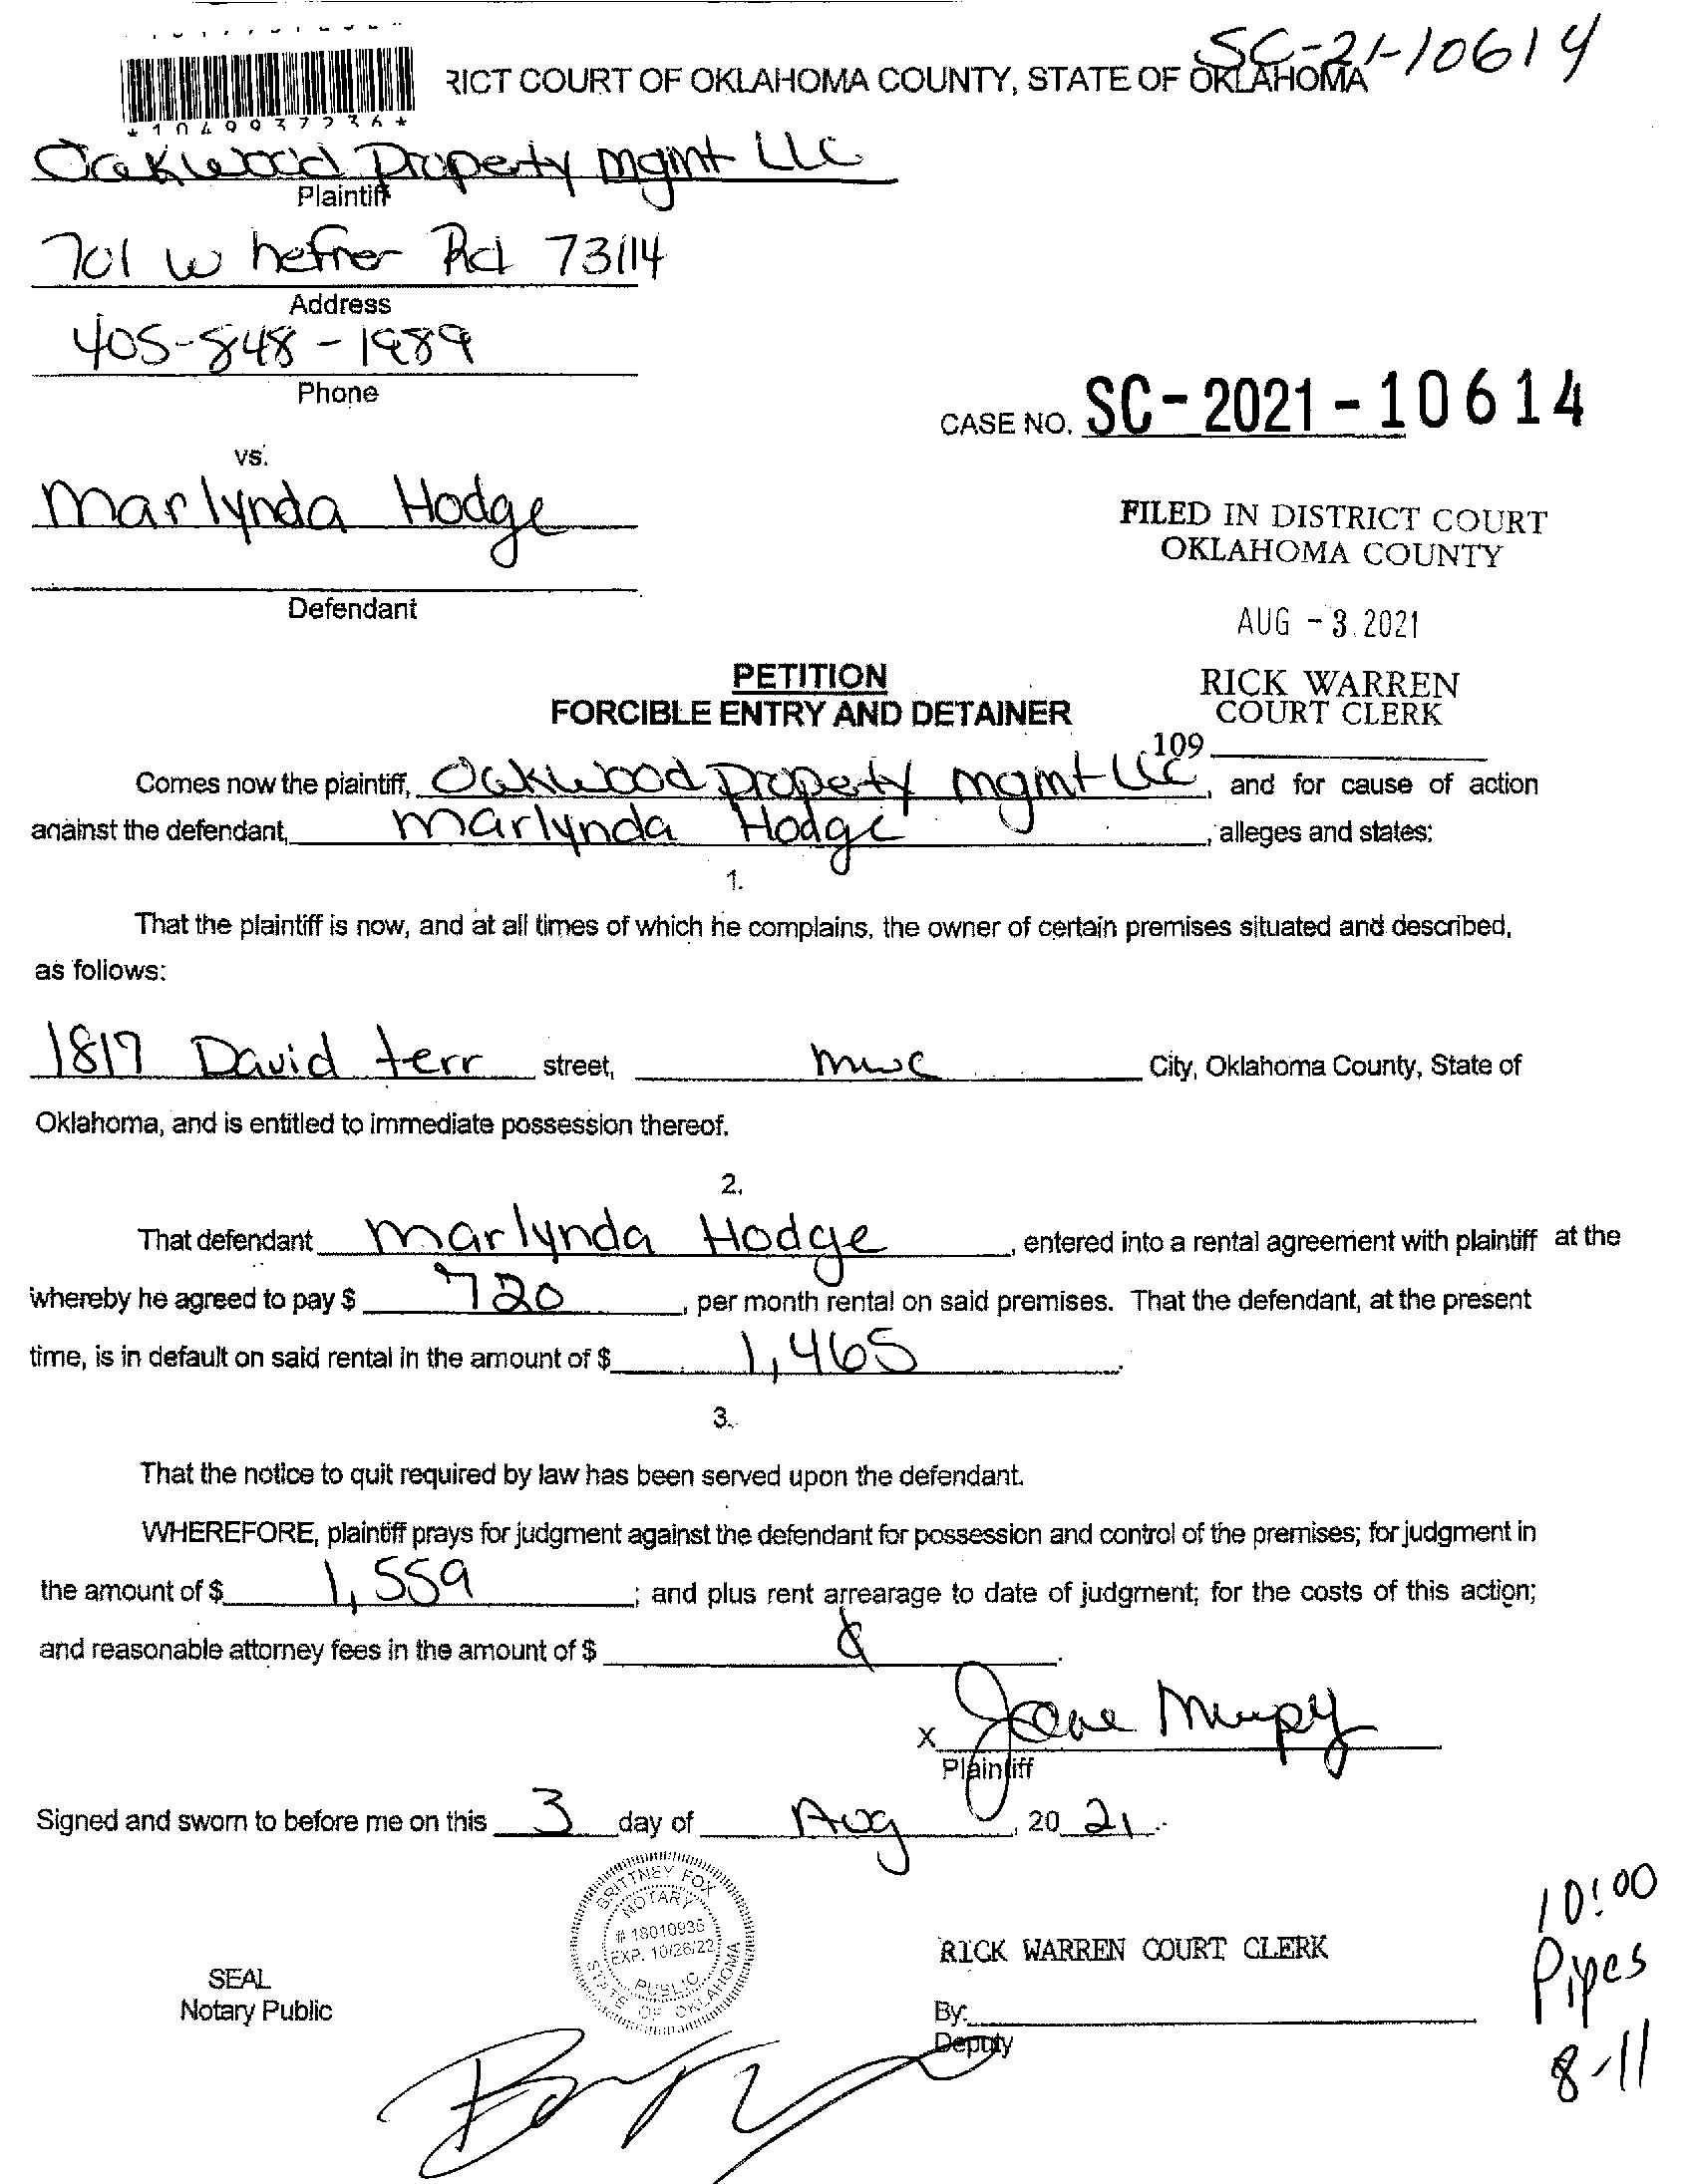 SC-21-10614
RICT COURT OF OKLAHOMA COUNTY, STATE OF OKLAHOMA
*1049937236*
Oakwood Property Mgmt LLC
Plaintiff
701 W hefner Rd 73114
Address
405-848-1989
Phone
CASE NO. SC-2021-10614
vs.
Marlynda Hodge
FILED IN DISTRICT COURT
OKLAHOMA COUNTY
Defendant
AUG -3 2021
PETITION
FORCIBLE ENTRY AND DETAINER
RICK WARREN
COURT CLERK
109
Comes now the plaintiff, Oakwood Property mgmt LLC, and for cause of action
against the defendant, Marlynda Hodge, alleges and states:
1.
That the plaintiff is now, and at all times of which he complains, the owner of certain premises situated and described,
as follows:
1817 David terr street, mwc City, Oklahoma County, State of
Oklahoma, and is entitled to immediate possession thereof.
2.
That defendant Marlynda Hodge, entered into a rental agreement with plaintiff at the
whereby he agreed to pay $ 720, per month rental on said premises. That the defendant, at the present
time, is in default on said rental in the amount of $ 1,465.
3.
That the notice to quit required by law has been served upon the defendant.
WHEREFORE, plaintiff prays for judgment against the defendant for possession and control of the premises; for judgment in
the amount of $ 1,559; and plus rent arrearage to date of judgment; for the costs of this action;
and reasonable attorney fees in the amount of $
X
Plaintiff
Signed and sworn to before me on this 3 day of Aug, 20 21.
BRITTNEY FOX
NOTARY
# 18010936
EXP. 10/26/22
PUBLIC
STATE OF OKLAHOMA
SEAL
Notary Public
RICK WARREN COURT CLERK
By:
Deputy
10:00
Pipes
8-11